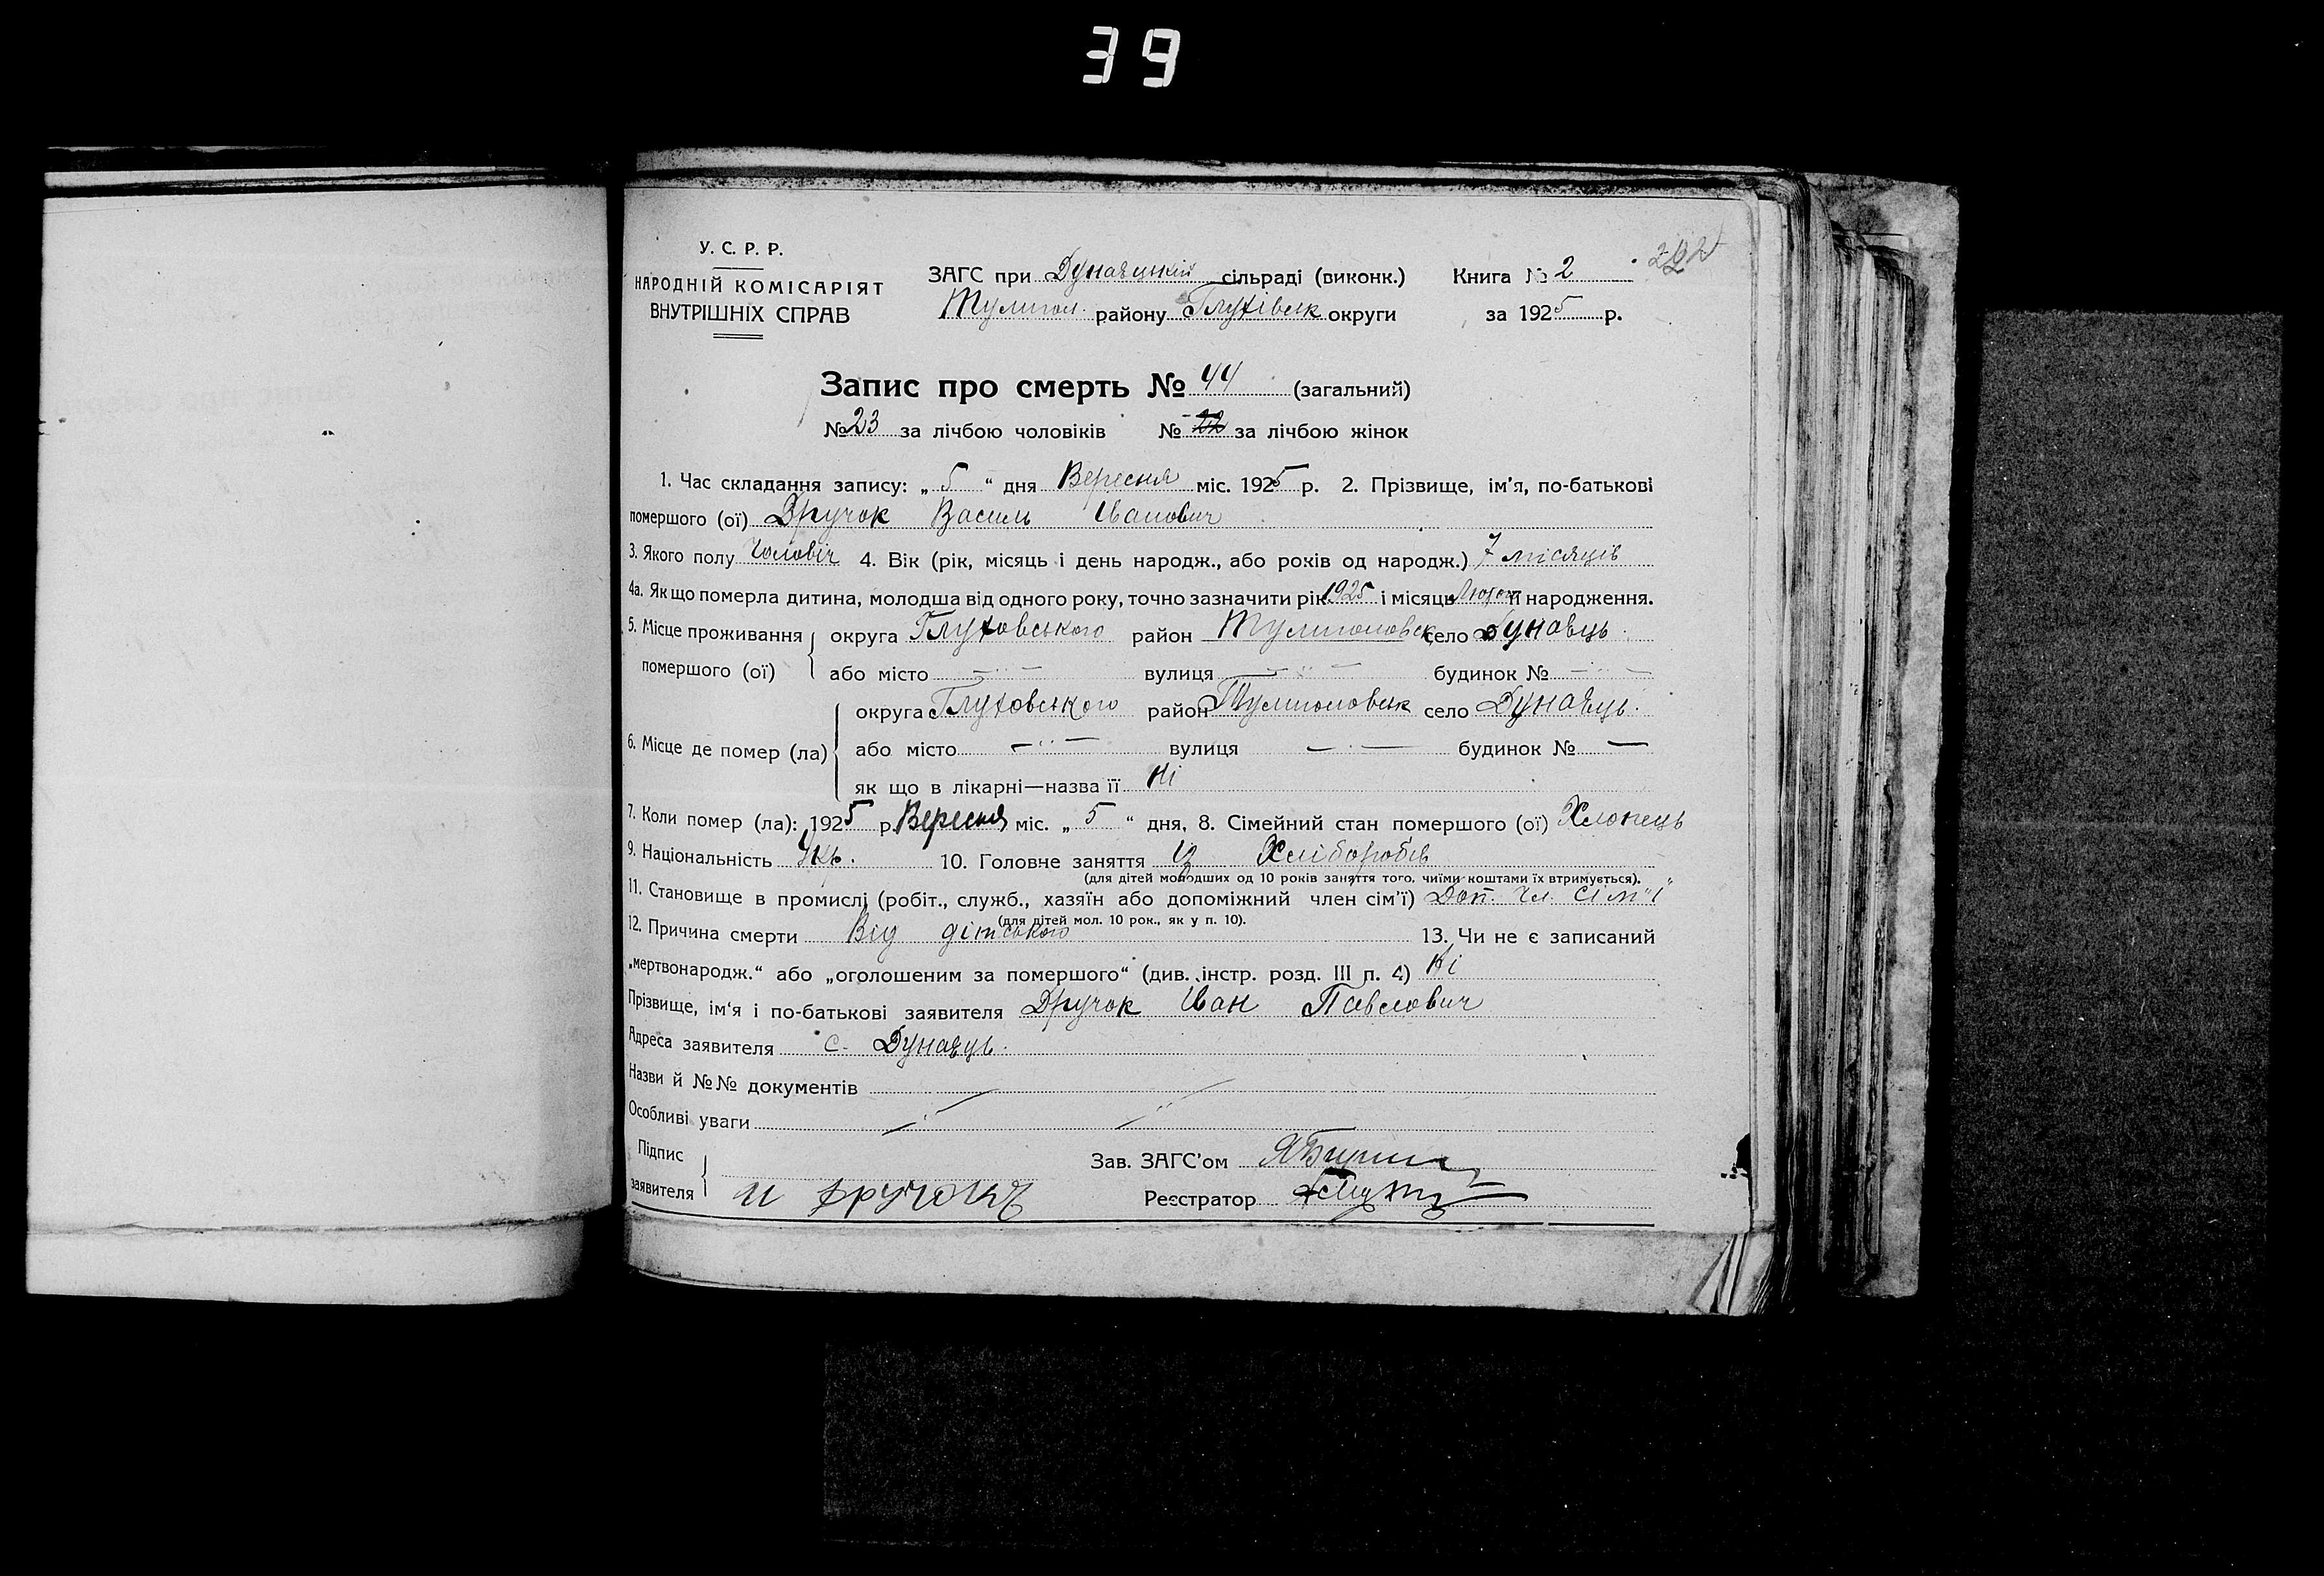 39
У. С. Р. Р.
НАРОДНІЙ КОМІСАРІЯТ
ВНУТРІШНІХ СПРАВ
ЗАГС при Дунаецкій сільраді (виконк.) Книга № 2
Тулигол. району Глухівськ округи за 1925 р.
Запис про смерть № 44 (загальний)
№ 23 за лічбою чоловіків № за лічбою жінок
1. Час складання запису: „ 5 “ дня Вересня міс. 1925 р. 2. Прізвище, ім'я, по-батькові
помершого (ої) Дручок Василь Іванович
3. Якого полу Чоловіч 4. Вік (рік, місяць і день народж., або років од народж.) 7 місяців
4а. Як що померла дитина, молодша від одного року, точно зазначити рік 1925 і місяць її народження.
5. Місце проживання помершого (ої) округа Глуховського район Тулиголовськ село Дунаєць.
або місто — " — вулиця — " — будинок № — " —
6. Місце де помер (ла) округа Глуховського район Тулиголовськ село Дунаєць.
або місто — " — вулиця — " — будинок № —
як що в лікарні—назва її Ні
7. Коли помер (ла): 1925 р. Вересня міс. „ 5 “ дня, 8. Сімейний стан помершого (ої) Хлопець
9. Національність Укр. 10. Головне заняття Із Хліборобів
(для дітей молодших од 10 років заняття того, чиїми коштами їх втримується).
11. Становище в промислі (робіт., служб., хазяїн або допоміжний член сім'ї) Доп. Чл. сім"ї"
(для дітей мол. 10 рок., як у п. 10).
12. Причина смерти Від дітського 13. Чи не є записаний
„мертвонародж.“ або „оголошеним за помершого“ (див. інстр. розд. III п. 4) Ні
Прізвище, ім'я і по-батькові заявителя Дручок Іван Павлович
Адреса заявителя с. Дунаєць.
Назви й №№ документів
Особливі уваги
Підпис заявителя и дручокъ
Зав. ЗАГС'ом
Реєстратор